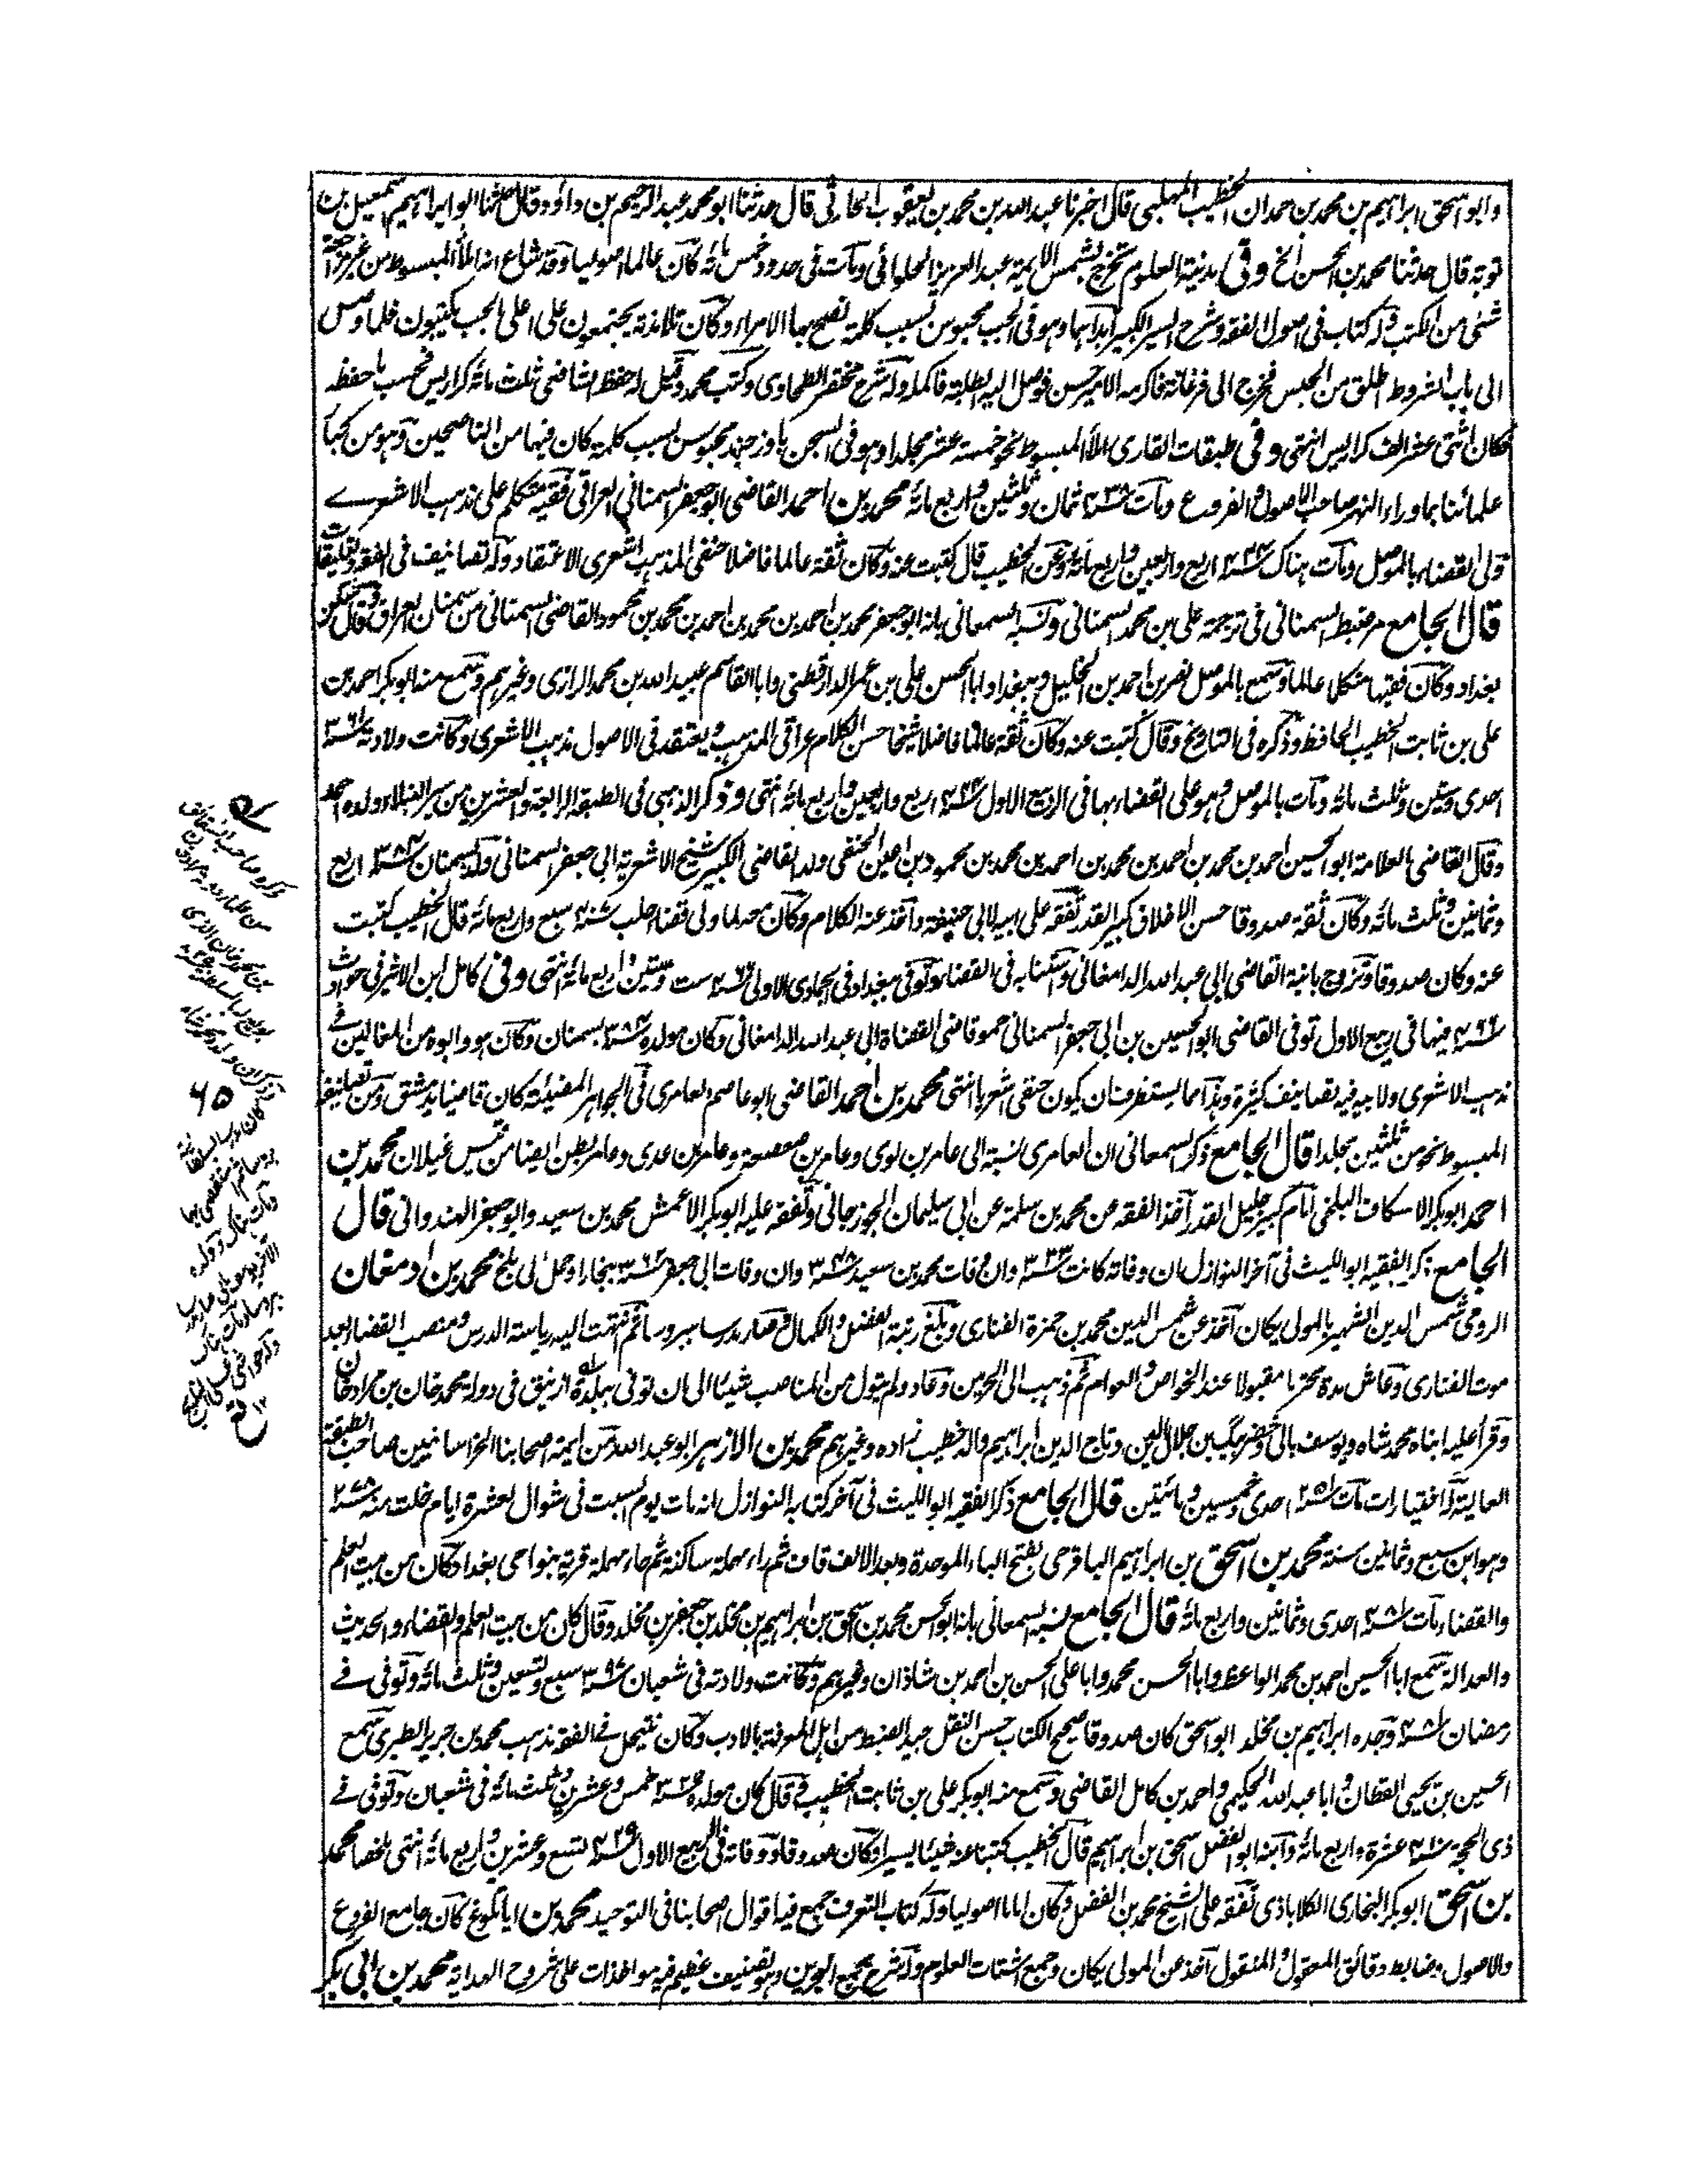 وابو اسحق ابراهيم بن محمد بن حمدان الخطيب المهلبي قال اخبرنا عبد الله بن محمد بن يعقوب الحارثي قال حدثنا ابو محمد عبد الرحيم بن داؤد وقال حدثنا ابو ابراهيم اسمعيل بن
توبة قال حدثنا محمد بن الحسن الخ وفي مدينة العلوم تخرج بشمس الايمة عبد العزيز الحلوائي ومات في حدود خمس مائة كان عالما اصوليا وقد شاع انه املأ المبسوط من غير مراجعة
شئ من الكتب وله كتاب في اصول الفقه وشرح السير الكبير ابدأهما وهو في الجب محبوس بسبب كلمة نصح بها الامراء وكان تلامذته يجتمعون على اعلى الجب يكتبون فلما وصل
الى باب الشروط اطلق من الحبس فخرج الى فرغانة فاكرمه الامير حسن فوصل اليه الطلبة فاكمله وله شرح مختصر الطحاوي وكتب محمد وقيل له حفظ الشافعي ثلث مائة كراريس فحسب ما حفظه
فكان اثنتى عشر الف كراريس انتهى وفي طبقات القاري املأ المبسوط نحو خمسة عشر مجلدا وهو في السجن باوزجند محبوس بسبب كلمة كان فيها من الناصحين وهو من كبار
علمائنا بما وراء النهر صاحب الاصول والفروع ومات سنة ٤٣٨ ثمان وثلثين واربع مائة محمد بن احمد القاضي ابو جعفر السمناني العراقي فقيه متكلم على مذهب الاشعرے
ولى القضاء بالموصل ومات هناك سنة ٤٤٤ اربع واربعين واربع مائة وعن الخطيب قال كتبت عنه وكان ثقة عالما فاضلا حنفي المذهب اشعري الاعتقاد وله تصانيف في الفقه وتعليقات
قال الجامع مر ضبط السمناني في ترجمة علي بن محمد السمناني ونسبه السمعاني بانه ابو جعفر محمد بن احمد بن محمد بن احمد بن محمد بن محمود القاضي السمناني من سمنان العراق وقال سكن
بغداد وكان فقيها متكلما عالما وسمع بالموصل نصر بن احمد بن الخليل وببغداد ابا الحسن علي بن عمر الدارقطني وابا القاسم عبيد الله بن محمد الرازي وغيرهم وسمع منه ابو بكر احمد بن
علي بن ثابت الخطيب الحافظ وذكره في التاريخ وقال كتبت عنه وكان ثقة عالما فاضلا شيخا حسن الكلام عراقي المذهب ويعتقد في الاصول مذهب الاشعري وكانت ولادته سنة ٣٦١
احدى وستين وثلث مائة ومات بالموصل وهو على القضاء بها في الربيع الاول سنة ٤٤٤ اربع واربعين واربع مائة انتهى وذكر الذهبي في الطبقة الرابعة والعشرين من سير النبلاء ولده احمد
وقال القاضي العلامة ابو الحسين احمد بن محمد بن احمد بن محمد بن احمد بن محمد بن محمود بن اعين الحنفي ولد القاضي الكبير شيخ الاشعرية ابي جعفر السمناني ولد بسمنان سنة ٣٨٤ اربع
وثمانين وثلث مائة وكان ثقة صدوقا حسن الاخلاق كبير القدر تفقه على ابيه لابي حنيفة واخذ عنه الكلام وكان معدلا ولى قضاء حلب سنة ٤٠٧ سبع واربع مائة قال الخطيب كتبت
عنه وكان صدوقا وتزوج بابنة القاضي ابي عبد الله الدامغاني واستنابه في القضاء وتوفي ببغداد في الجمادى الاولى سنة ٤٦٦ ست وستين واربع مائة انتهى وفي كامل ابن الاثير في حوادث
سنة ٤٦٦ فيها في ربيع الاول توفي القاضي ابو الحسين بن ابي جعفر السمناني حمو قاضي القضاة ابي عبد الله الدامغاني وكان مولده سنة ٣٨٤ بسمنان وكان هو وابوه من المغالين في
مذهب الاشعري ولابيه فيه تصانيف كثيرة وهذا مما يستظرف ان يكون حنفي اشعريا انتهى محمد بن احمد القاضي ابو عاصم العامري في الجواهر المضيئة كان قاضيا بدمشق ومن تصانيفه
المبسوط نحو من ثلثين مجلدا قال الجامع ذكر السمعاني ان العامري نسبة الى عامر بن لوى وعامر بن صعصعة وعامر بن عدى وعامر بطن ايضا من قيس غيلان محمد بن
احمد ابو بكر الاسكاف البلخي امام كبير جليل القدر اخذ الفقه عن محمد بن سلمة عن ابي سليمان الجوزجاني وتفقه عليه ابو بكر الاعمش محمد بن سعيد وابو جعفر الهندواني قال
الجامع ذكر الفقيه ابو الليث في آخر النوازل ان وفاته كانت سنة ٣٣٣ وان وفات محمد بن سعيد سنة ٣٤٨ وان وفات ابي جعفر سنة ٣٦٢ ببخارا وحمل الى بلخ محمد بن ادمغان
الرومي شمس الدين الشهير بالمولى يكان اخذ عن شمس الدين محمد بن حمزة الفناري وبلغ رتبة الفضل والكمال وصار مدرسا ببروسا ثم انتهت اليه رياسة الدرس ومنصب القضاء بعد
موت الفناري وعاش مدة محترما مقبولا عند الخواص والعوام ثم ذهب الى الحرمين وعاد ولم يتول من المناصب شيئا الى ان توفي ببلدة ازنيق في دولة محمد خان بن مراد خان
وقرأ عليه ابناه محمد شاه ويوسف بالي وخضر بيگ بن جلال الدين وتاج الدين ابراهيم والد خطيب زاده وغيرهم محمد بن الازهر ابو عبد الله من ايمة اصحابنا الخراسانيين صاحب الطبقة
العالية له اختيارات مات سنة ٢٥١ احدى وخمسين ومائتين قال الجامع ذكر الفقيه ابو الليث في آخر كتابه النوازل انه مات يوم السبت في شوال لعشرة ايام خلت منه سنة ٢٧٨
وهو ابن سبع وثمانين سنة محمد بن اسحق بن ابراهيم الباقرحي بفتح الباء الموحدة وبعد الالف قاف ثم راء مهملة ساكنة ثم حاء مهملة قرية بنواحي بغداد كان من بيت العلم
والقضاء مات سنة ٤٨١ احدى وثمانين واربع مائة قال الجامع نسبه السمعاني بانه ابو الحسن محمد بن اسحق بن ابراهيم بن مخلد بن جعفر بن مخلد وقال كان من بيت العلم والقضاء والحديث
والعدالة سمع ابا الحسين احمد بن محمد الواعظ وابا الحسن محمد وابا علي الحسن بن احمد بن شاذان وغيرهم وكانت ولادته في شعبان سنة ٣٩٧ سبع وتسعين وثلث مائة وتوفي في
رمضان سنة ٤٨١ وجده ابراهيم بن مخلد ابو اسحق كان صدوقا صحيح الكتاب حسن النقل جيد الضبط من اهل المعرفة بالادب وكان ينتحل في الفقه مذهب محمد بن جرير الطبري سمع
الحسين بن يحيى القطان وابا عبد الله الحكيمي واحمد بن كامل القاضي وسمع منه ابو بكر علي بن ثابت الخطيب وقال كان مولده سنة ٣٢٥ خمس وعشرين وثلث مائة في شعبان وتوفي في
ذي الحجة سنة ٤١٠ عشرة واربع مائة وابنه ابو الفضل اسحق بن ابراهيم قال الخطيب كتبنا عنه شيئا يسيرا وكان صدوقا ووفاته في الربيع الاول سنة ٤٢٩ تسع وعشرين واربع مائة انتهى ملخصا محمد
بن اسحق ابو بكر البخاري الكلاباذي تفقه على الشيخ محمد بن الفضل وكان اماما اصوليا وله كتاب التعرف جمع فيه اقوال اصحابنا في التوحيد محمد بن اياتلوغ كان جامع الفروع
والاصول وضابط دقائق المعقول والمنقول اخذ عن المولى يكان وجمع اشتات العلوم وله شرح مجمع البحرين وهو تصنيف عظيم فيه مواخذات على شروح الهداية محمد بن ابي بكر
ذكر صاحب الشقائق
٦٥